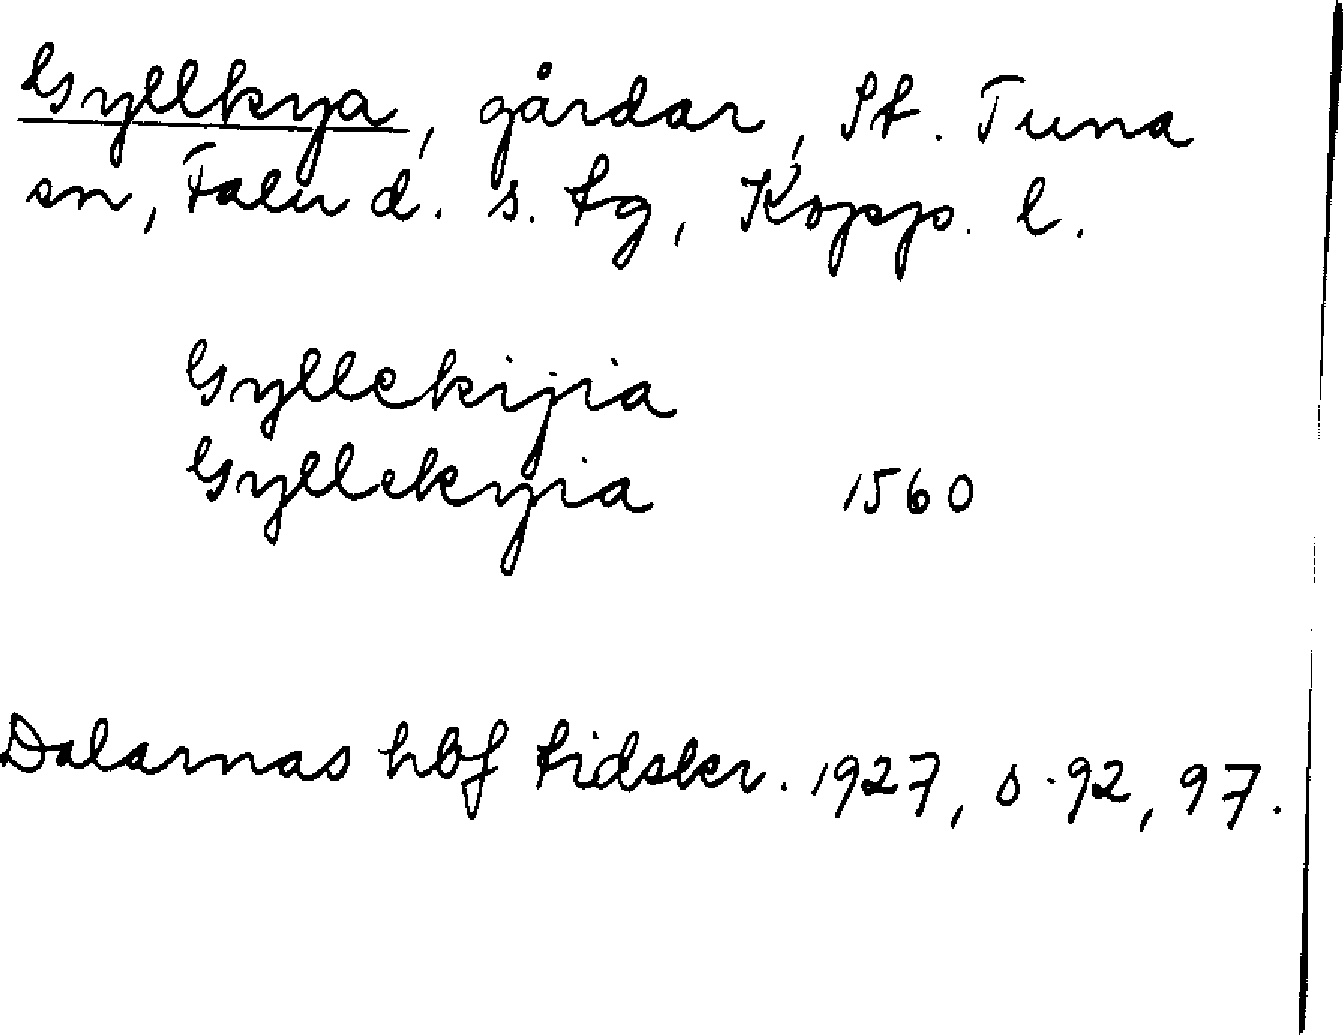 Gyllkya, gårdar, St. Tuna
sn, Falu d. s. tg, Kopp. l.
Gyllekijia
Gyllekyia 1560
Dalarnas hbf tidskr. 1927, s. 92, 97.